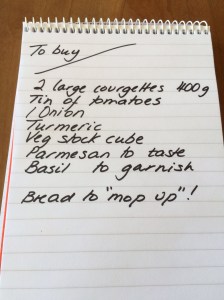 To buy
2 large courgettes 400g
Tin of tomatoes
1 Onion
Turmeric
Veg stock cube
Parmesan to taste
Basil to garnish
Bread to "mop up"!